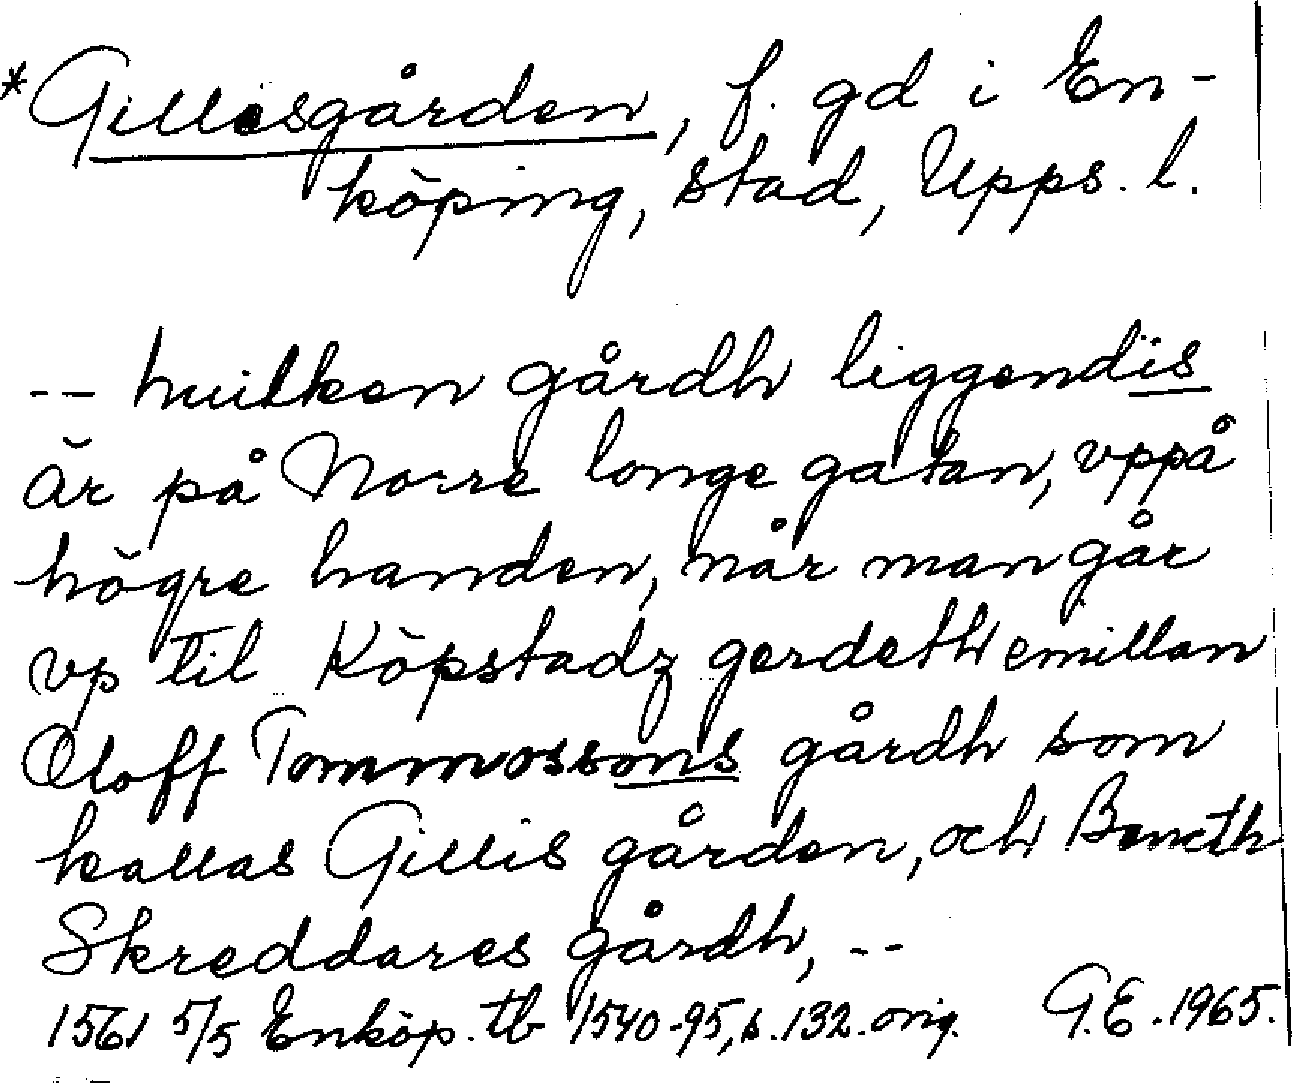 *Gillisgården, f. gd i En-
köping, stad, Upps. l.
-- huilken gårdh liggendis
är på Norre longe gatan, vppå
högre handen, når man går
vp til Köpstadz gerdeth emillan
Oloff Tommossons gårdh som
kallas Gillis gården, och Bencth
Skreddares gårdh, --
1561 5/5 Enköp. tb 1540-95, s. 132. orig. G.E. 1965.